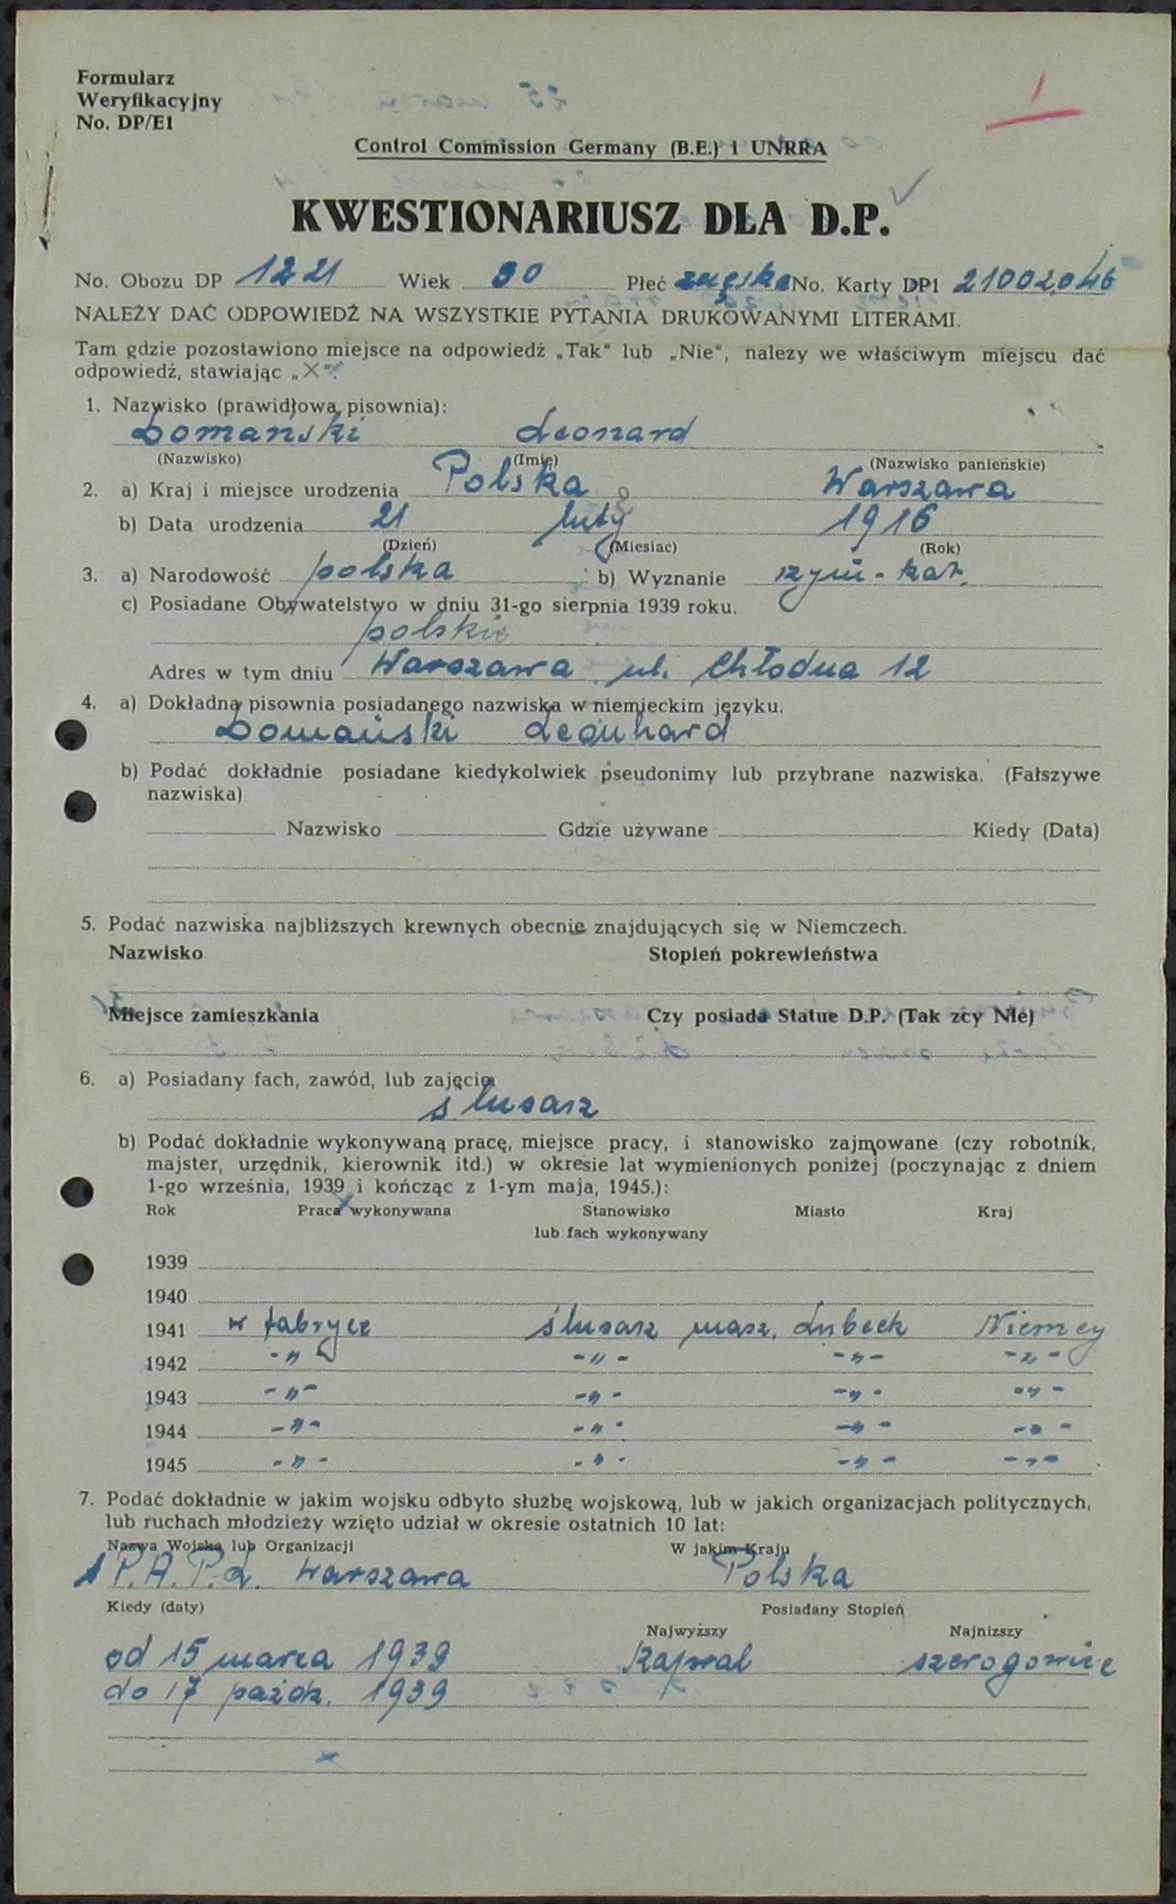 Formularz
Weryfikacyjny
No. DP/E1
1
Control Commission Germany (B.E.) i UNRRA
KWESTIONARIUSZ DLA D.P.
No. Obozu DP 1221 Wiek 30 Płeć męska No. Karty DP1 21002046
NALEŻY DAĆ ODPOWIEDŹ NA WSZYSTKIE PYTANIA DRUKOWANYMI LITERAMI.
Tam gdzie pozostawiono miejsce na odpowiedź „Tak" lub „Nie", nalezy we właściwym miejscu dać
odpowiedź, stawiając „X".
1. Nazwisko (prawidłowa pisownia):
Domański Leonard
(Nazwisko) (Imię) (Nazwisko panieńskie)
2. a) Kraj i miejsce urodzenia Polska Warszawa
b) Data urodzenia 21 luty 1916
(Dzień) (Miesiac) (Rok)
3. a) Narodowość polska b) Wyznanie rzym-kat.
c) Posiadane Obywatelstwo w dniu 31-go sierpnia 1939 roku.
polskie
Adres w tym dniu Warszawa ul. Chłodna 12
4. a) Dokładna pisownia posiadanego nazwiska w niemieckim języku.
Domański Leonhard
b) Podać dokładnie posiadane kiedykolwiek pseudonimy lub przybrane nazwiska. (Fałszywe
nazwiska)
Nazwisko Gdzie używane Kiedy (Data)
5. Podać nazwiska najbliższych krewnych obecnie znajdujących się w Niemczech.
Nazwisko Stopień pokrewieństwa
Miejsce zamieszkania Czy posiada Statue D.P. (Tak zcy Nie)
6. a) Posiadany fach, zawód, lub zajęcie
ślusarz
b) Podać dokładnie wykonywaną pracę, miejsce pracy, i stanowisko zajmowane (czy robotnik,
majster, urzędnik, kierownik itd.) w okresie lat wymienionych poniżej (poczynając z dniem
1-go września, 1939 i kończąc z 1-ym maja, 1945.):
Rok Praca wykonywana Stanowisko Miasto Kraj
lub fach wykonywany
1939
1940
1941 w fabryce ślusarz masz. Lubeck Niemcy
1942 -"- -"- -"- -"-
1943 -"- -"- -"- -"-
1944 -"- -"- -"- -"-
1945 -"- -"- -"- -"-
7. Podać dokładnie w jakim wojsku odbyto służbę wojskową, lub w jakich organizacjach politycznych,
lub ruchach młodzieży wzięto udział w okresie ostatnich 10 lat:
Nazwa Wojska lub Organizacji W jakim Kraju
1 P.A.P.L. Warszawa Polska
Kiedy (daty) Posiadany Stopień
Najwyższy Najnizszy
od 15 marca 1939 Kapral szerogowiec
do 17 paźdz. 1939